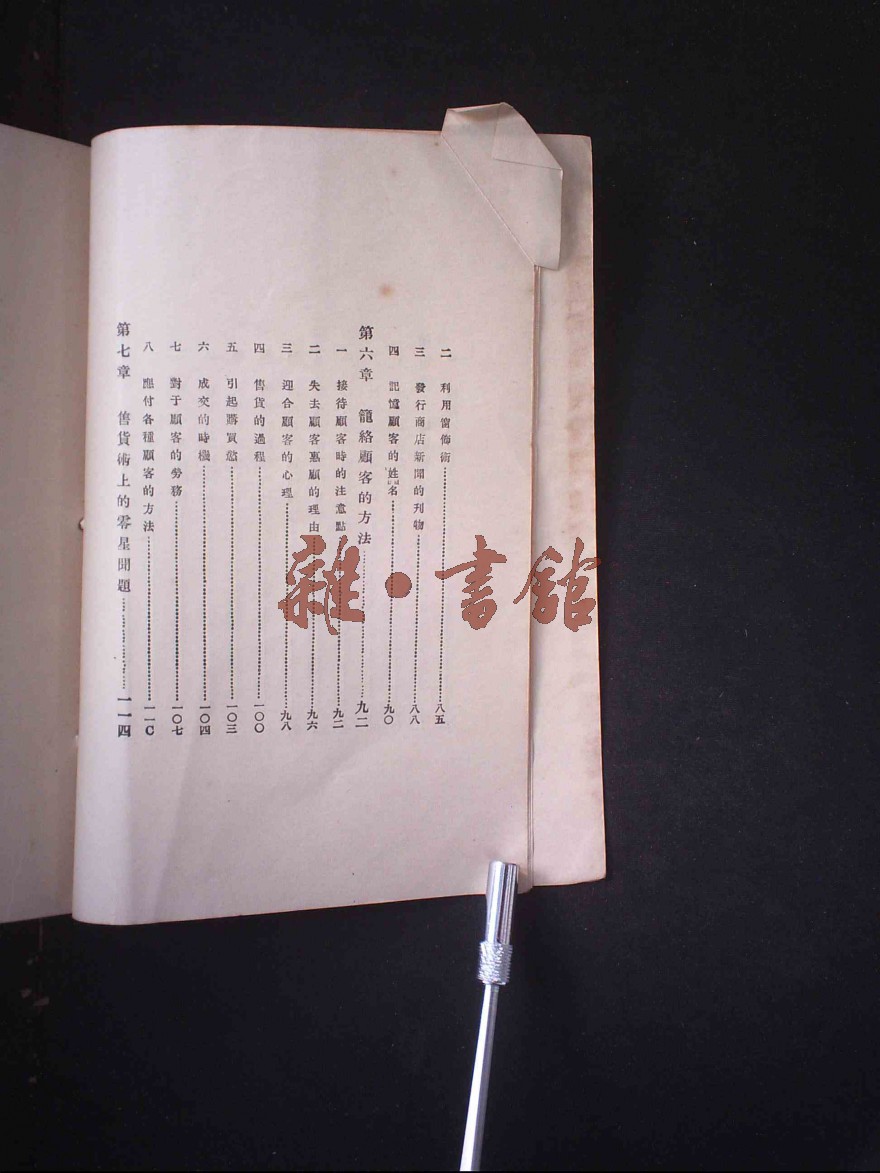 二 利用窗飾術……八五
三 發行商店新聞的刊物……八八
四 記憶顧客的姓名……九〇
第六章 籠絡顧客的方法……九二
一 接待顧客時的注意點……九二
二 失去顧客惠顧的理由……九六
三 迎合顧客的心理……九八
四 售貨的過程……一〇〇
五 引起購買慾……一〇三
六 成交的時機……一〇四
七 對于顧客的勞務……一〇七
八 應付各種顧客的方法……一一〇
第七章 售貨術上的零星問題……一一四
雜·書館